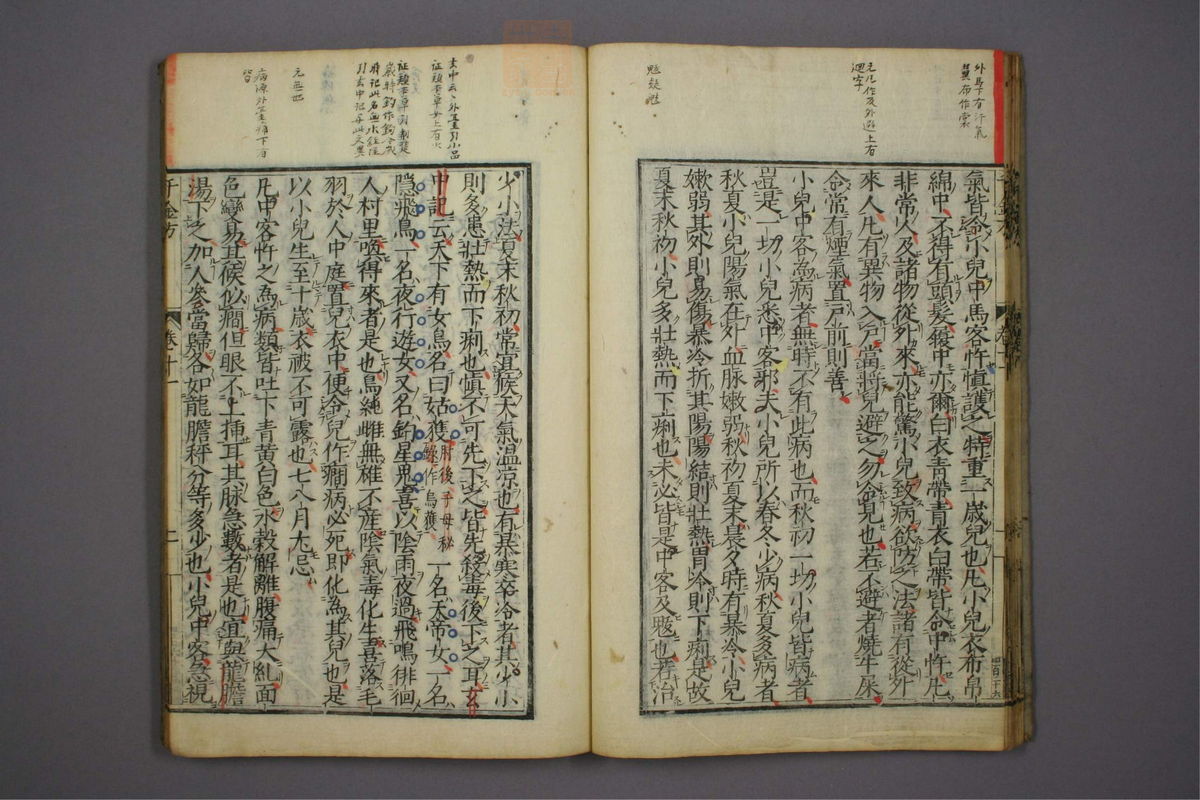 氣皆令小兒中馬客忤慎護之特重一歲兒也凡小兒衣布帛
綿中不得有頭髮履中亦爾白衣青帶青衣白帶皆令中忤凡
非常人及諸物從外來亦能驚小兒致病欲防之法諸有從外
來人凡有異物入戶當將兒避之勿令見也若不避者燒牛屎
令常有煙氣置戶前則善
小兒中客為病者無時不有此病也而秋初一切小兒皆病者
豈是一切小兒悉中客邪夫小兒所以春冬少病秋夏多病者
秋夏小兒陽氣在外血脉嫩弱秋初夏末晨夕時有暴冷小兒
嫩弱其外則易傷暴冷折其陽陽結則壯熱胃冷則下痢是故
夏末秋初小兒多壯熱而下痢也未必皆是中客及魃也若治
少小法夏末秋初常宜候天氣溫涼也有暴寒卒冷者其少小
則多患壯熱而下痢也慎不可先下之皆先殺毒後下之耳玄
中記云天下有女鳥名曰姑獲肘後子母秘錄作烏獲一名天帝女一名
隱飛鳥一名夜行遊女又名鈎星鬼喜以陰雨夜過飛鳴徘徊
人村里喚得來者是也鳥純雌無雄不產陰氣毒化生喜落毛
羽於人中庭置兒衣中便令兒作癇病必死即化為其兒也是
以小兒生至十歲衣被不可露也七八月尤忌
凡中客忤之為病類皆吐下青黃白色水穀解離腹痛夭糺面
色變易其候似癇但眼不上揷耳其脉急數者是也宜與龍膽
湯下之加人參當歸各如龍膽秤分等多少也小兒中客急視
千金方 卷十一 二